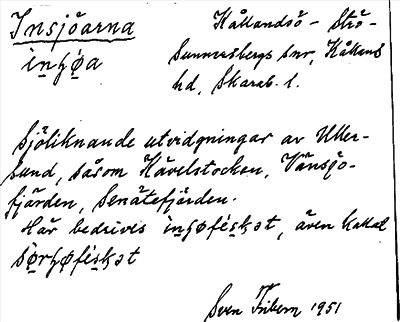 Insjöarna
Kållandsö – Strö-
Sunnersbergs snr, Kållands
inʃøa
hd, Skarab. l.
Sjöliknande utvidgningar av Uller-
sund, såsom Hävelstocken, Vänsjö-
fjärden, Senätefjärden.
Här bedrives
även kallat
Sven Fribern 1951